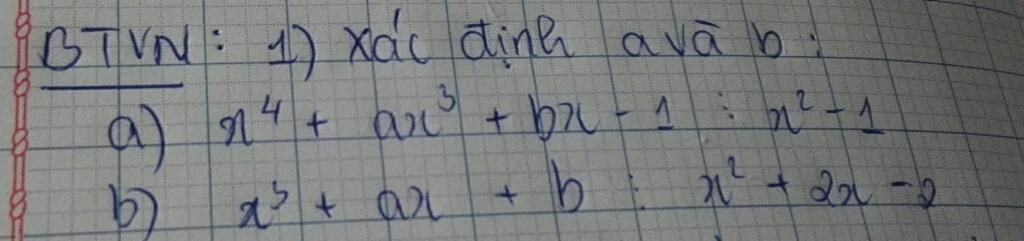 BTVN: 1) xác định a và b:
a) x⁴ + ax³ + bx - 1 ⋮ x² - 1
b) x³ + ax + b ⋮ x² + 2x - 2